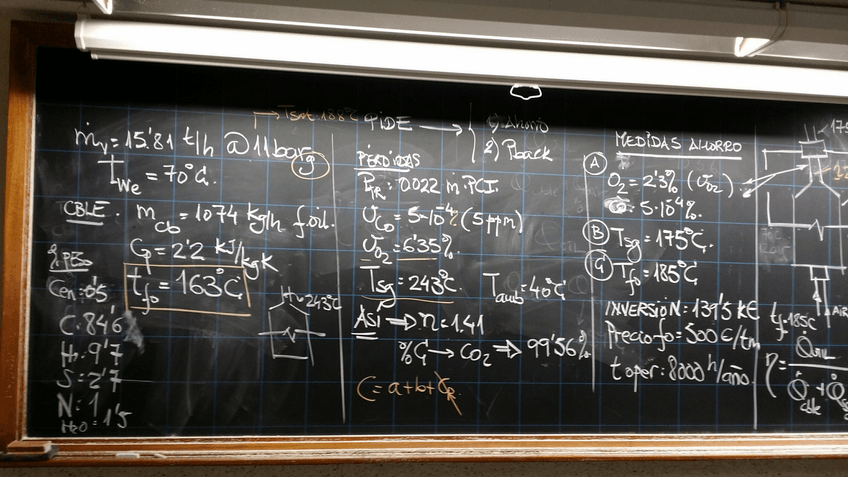 ṁv = 15'81 t/h @ 11 barg
Twe = 70°C.
CBLE. mcb = 1074 kg/h f.oil.
Cp = 2'2 kJ/kgK
tfo = 163°C
% PESO
Cen: 0'5
C: 84'6
H: 9'7
S: 2'7
N: 1'
H2O = 1'5
Hv 243°C
Tsat 188°C
PIDE → 1) Ahorro
2) Pback
PÉRDIDAS
PTR: 0'022 ṁ·PCI.
UCO = 5·10⁻⁴% (5 ppm)
UO2 = 6'35%
Tsg = 243°C.
Tamb = 40°C
ASÍ ⇒ n = 1.41
%C → CO2 ⇒ 99'56%
C = a + b +
MEDIDAS AHORRO
A O2 = 2'3% (UO2)
CO = 5·10⁻⁴%.
B Tsg = 175°C.
C Tfo = 185°C
INVERSIÓN: 139'5 k€
Precio fo = 500 €/tm
t oper: 8000 h/año
175
AIR
tf 185C
η = Qútil
Qcble + Qs